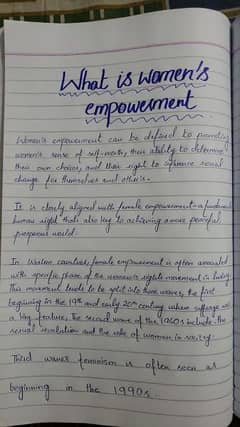 What is women's
empowerment
Women's empowerment can be defined to promoting
women's sense of self-worth, their ability to determine
their own choices, and their right to influence social
change for themselves and others.
It is closely aligned with female empowerment - a fundamental
human right that's also key to achieving a more peaceful
prosperous world.
In Western countries, female empowerment is often associated
with specific phase of the women's rights movement in history.
This movement tends to be split into three waves, the first
beginning in the 19th and early 20th century where suffrage was
a key feature, the second wave of the 1960s include the
sexual revolution and the role of women in society.
Third waves feminism is often seen as
beginning in the 1990s.